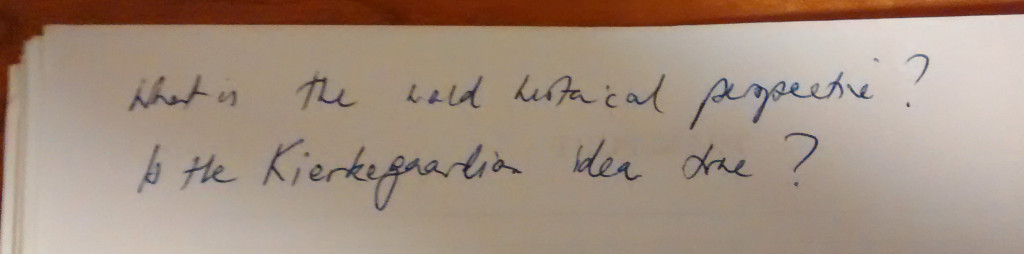 What is the world historical perspective?
Is the Kierkegaardian idea true?